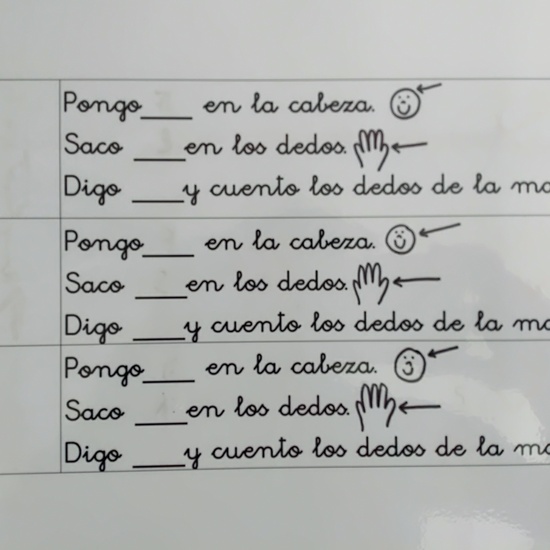 Pongo____ en la cabeza.
Saco ____en los dedos.
Digo ____y cuento los dedos de la
Pongo____ en la cabeza.
Saco ____en los dedos.
Digo ____y cuento los dedos de la
Pongo____ en la cabeza.
Saco ____en los dedos.
Digo ____y cuento los dedos de la